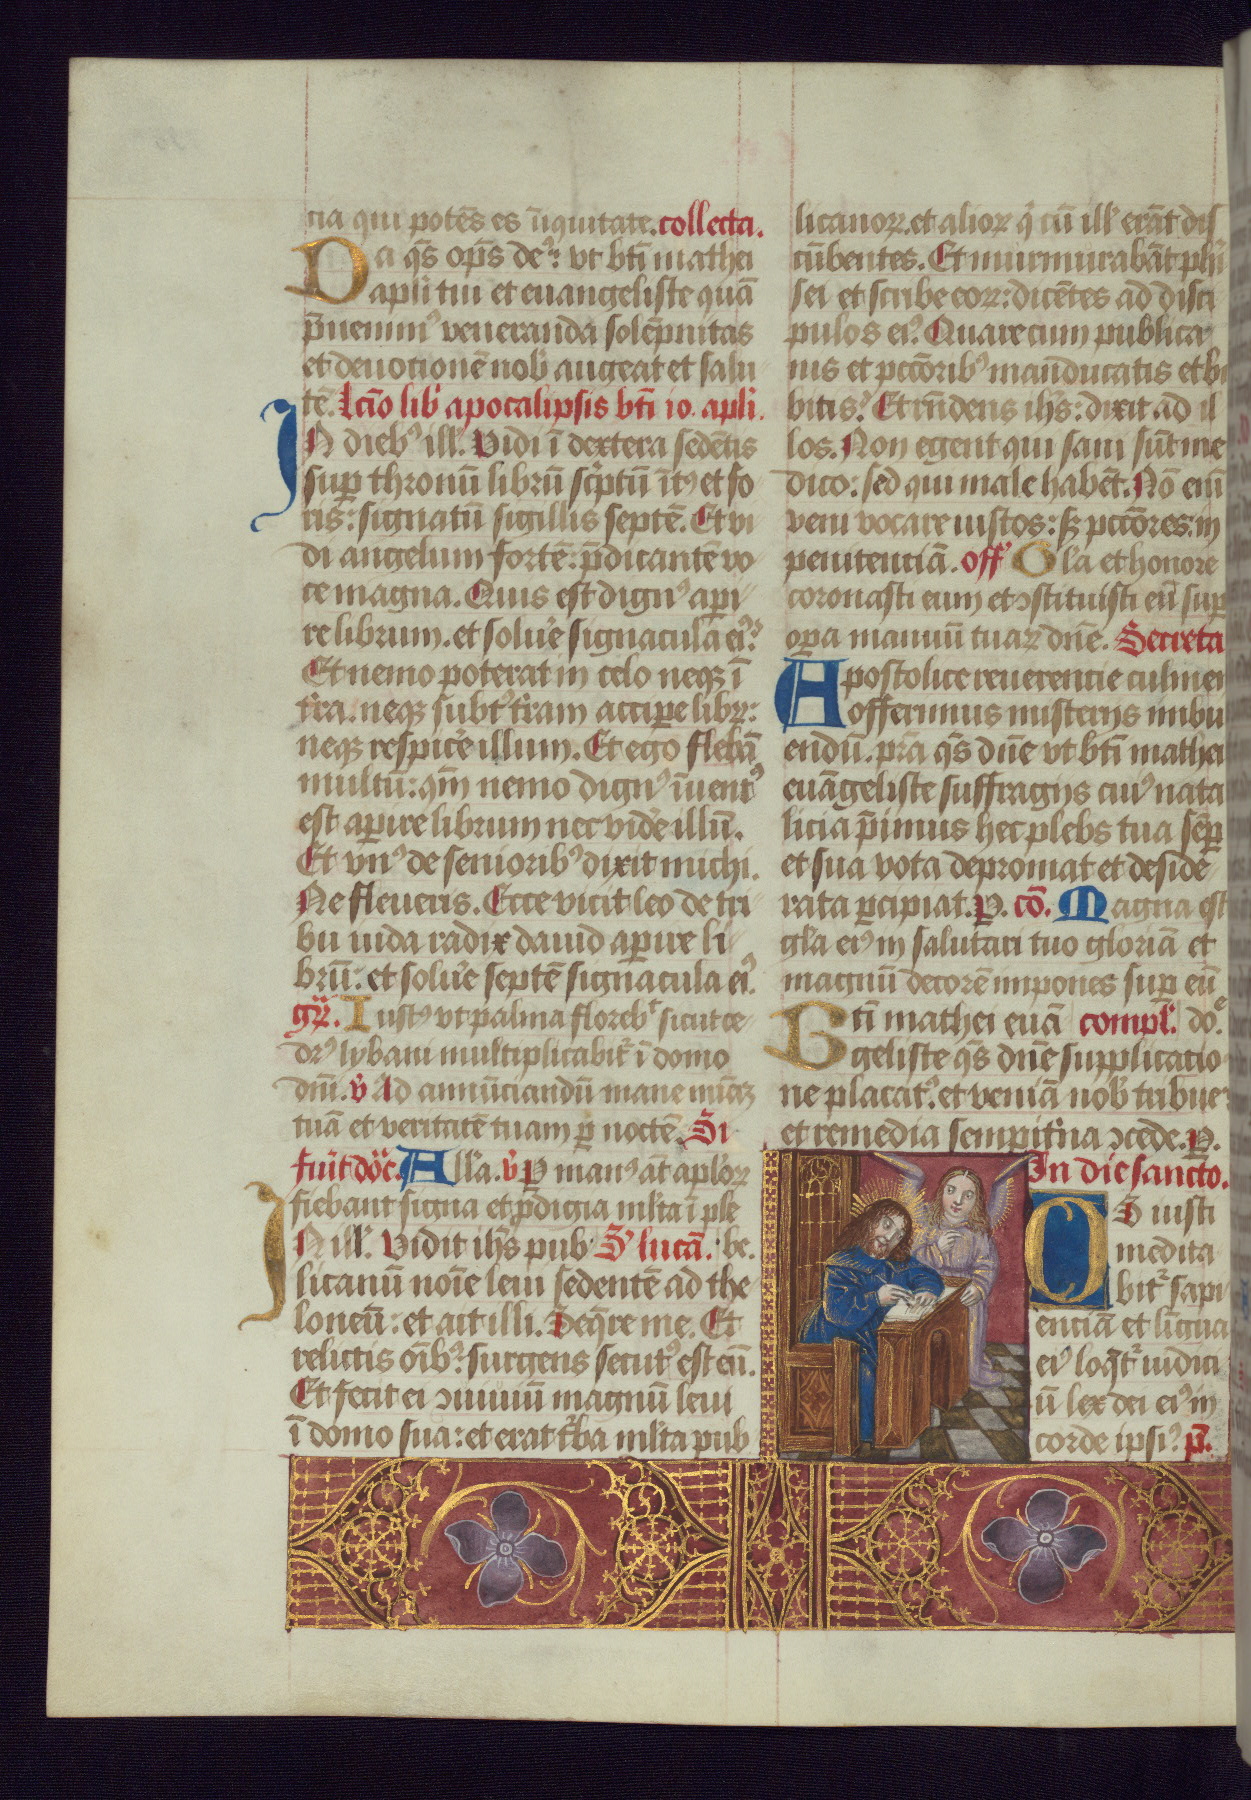 tia qui potēs es ī iniquitate. collecta.
Da q̄s op̄s deꝰ: vt bt̄i mathei
apl̄i tui et euangeliste quā
p̄uenimꝰ veneranda solēpnitas
et deuotionē nob̄ augeat et salu
tē. Lc̄io lib̄ apocalipsis bt̄i io. apl̄i.
IN diebꝰ ill̄. Vidi ī dextera sedētis
suꝑ thronū librū sc̄ptū ītꝰ et fo
ris: signatū sigillis septē. Et vi
di angelum fortē: p̄dicantē vo
ce magna. Quis est dignꝰ aꝑi
re librum. et soluē signacula eiꝰ:
Et nemo poterat in celo neqꝫ ī
t̄ra. neqꝫ subtꝰ t̄ram aciꝑe libꝝ:
neqꝫ respic̄e illum. Et ego flebā
multū: qm̄ nemo dignꝰ īuentꝰ
est aꝑire librum nec vid̄e illū.
Et vnꝰ de senioribꝰ dixit michi.
Ne fleueris. Ecce vicit leo de tri
bu iuda radix dauid aꝑire li
brū: et solūe septē signacula eiꝰ.
gͬ. Iustꝰ vt palma florebit̄ sicut ce
drꝰ lybani multiplicabit̄ ī domo
dn̄i. v̄ Ad annūciandū mane mīaꝫ
tuā et veritatē tuam ꝑ noctē. Si
fūit do͞c. All̄a. v̄ P manꝰ āt apl̄oꝝ
fiebant signa et ꝓdigia ml̄ta ī ple
IN ill̄. Vidit ih̄s pub S' lucā. be.
licanū noīe leui sedentē ad the
loneū: et ait illi. Seq̄re me. Et
relictis oībꝰ: surgens secutꝰ est eū.
Et fecit ei ↄuiuiū magnū leui
ī domo sua: et erat t̄ba ml̄ta pub
licanoꝝ. et alioꝝ q̄ cū ill̄ erāt dis
cūbentes. Et murmurabāt pha̅ri
sei et scribe eoꝝ: dicētes ad disci
pulos eiꝰ. Quare cum publica
nis et pccōribꝰ manducatis et bi
bitis? Et rn̄dens ih̄s: dixit ad il
los. Non egent qui sani sūt me
dico: sed qui male habēt. Nō eni̅
veni vocare iustos: sꝫ pccōres. in
penitenciā. off' Gl̄a et honore
coronasti eum et ↄstituisti eū suꝑ
oꝑa manuū tuaꝝ dn̄e. Secreta
Apostolice reuerentie culmen
offerimus misterijs imbu
endū. p̄ra q̄s dn̄e vt bt̄i mathei
euāgeliste suffragijs cuiꝰ nata
liciā p̄imus hec plebs tua sēꝑ
et sua vota depromat et deside
rata ꝑcipiat. P. cō. Magna est
gl̄a eiꝰ in salutari tuo gloriā et
magnū decorē impones suꝑ eū
Bt̄i mathei euā compl̄. do͞e
geliste q̄s dn̄e supplicatio
ne placatꝰ. et veniā nob̄ tribue:
et remedia sempit̄na ↄcede. P.
In die sancto.
OS iusti
medita
bit̄ sapi
entiā et līgua
eiꝰ loq̄t̄ iudici
ū lex dei eiꝰ in
corde ipsiꝰ. p̄.